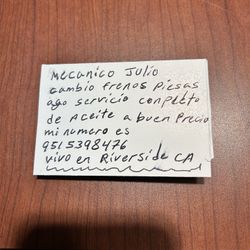 mecanico Julio
cambio frenos piesas
ago servicio conpleto
de aceite a buen precio
mi numero es
9515398476
vivo en Riverside CA